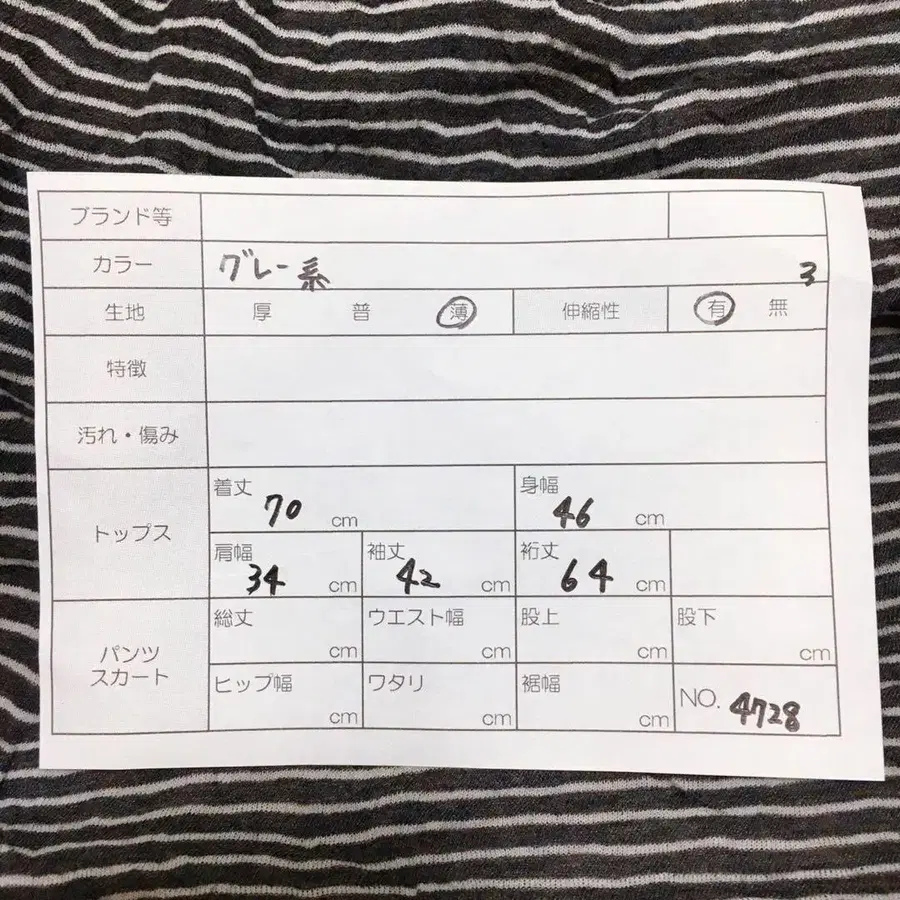 ブランド等
カラー グレー系 3
生地 厚 普 薄 伸縮性 有 無
特徴
汚れ・傷み
トップス
着丈 70 cm 身幅 46 cm
肩幅 34 cm 袖丈 42 cm 裄丈 64 cm
パンツ
スカート
総丈 cm ウエスト幅 cm 股上 cm 股下 cm
ヒップ幅 cm ワタリ cm 裾幅 cm NO. 4728